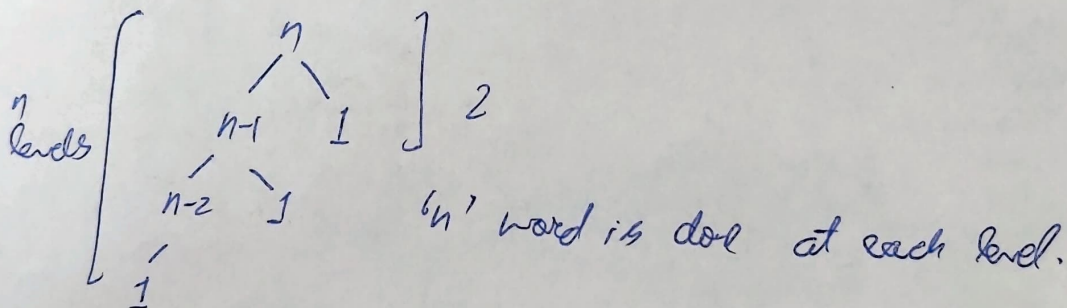 n
n
levels
n-1 1 2
n-2 1
'n' word is doe at each level.
1